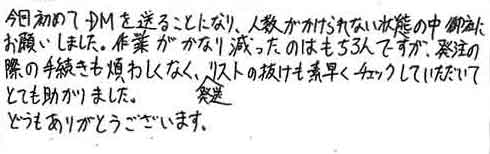 今回初めてDMを送ることになり、人数がかけられない状態の中御社に
お願いしました。作業がかなり減ったのはもちろんですが、発注の
際の手続きも煩わしくなく、発送リストの抜けも素早くチェックしていただいて
とても助かりました。
どうもありがとうございます。